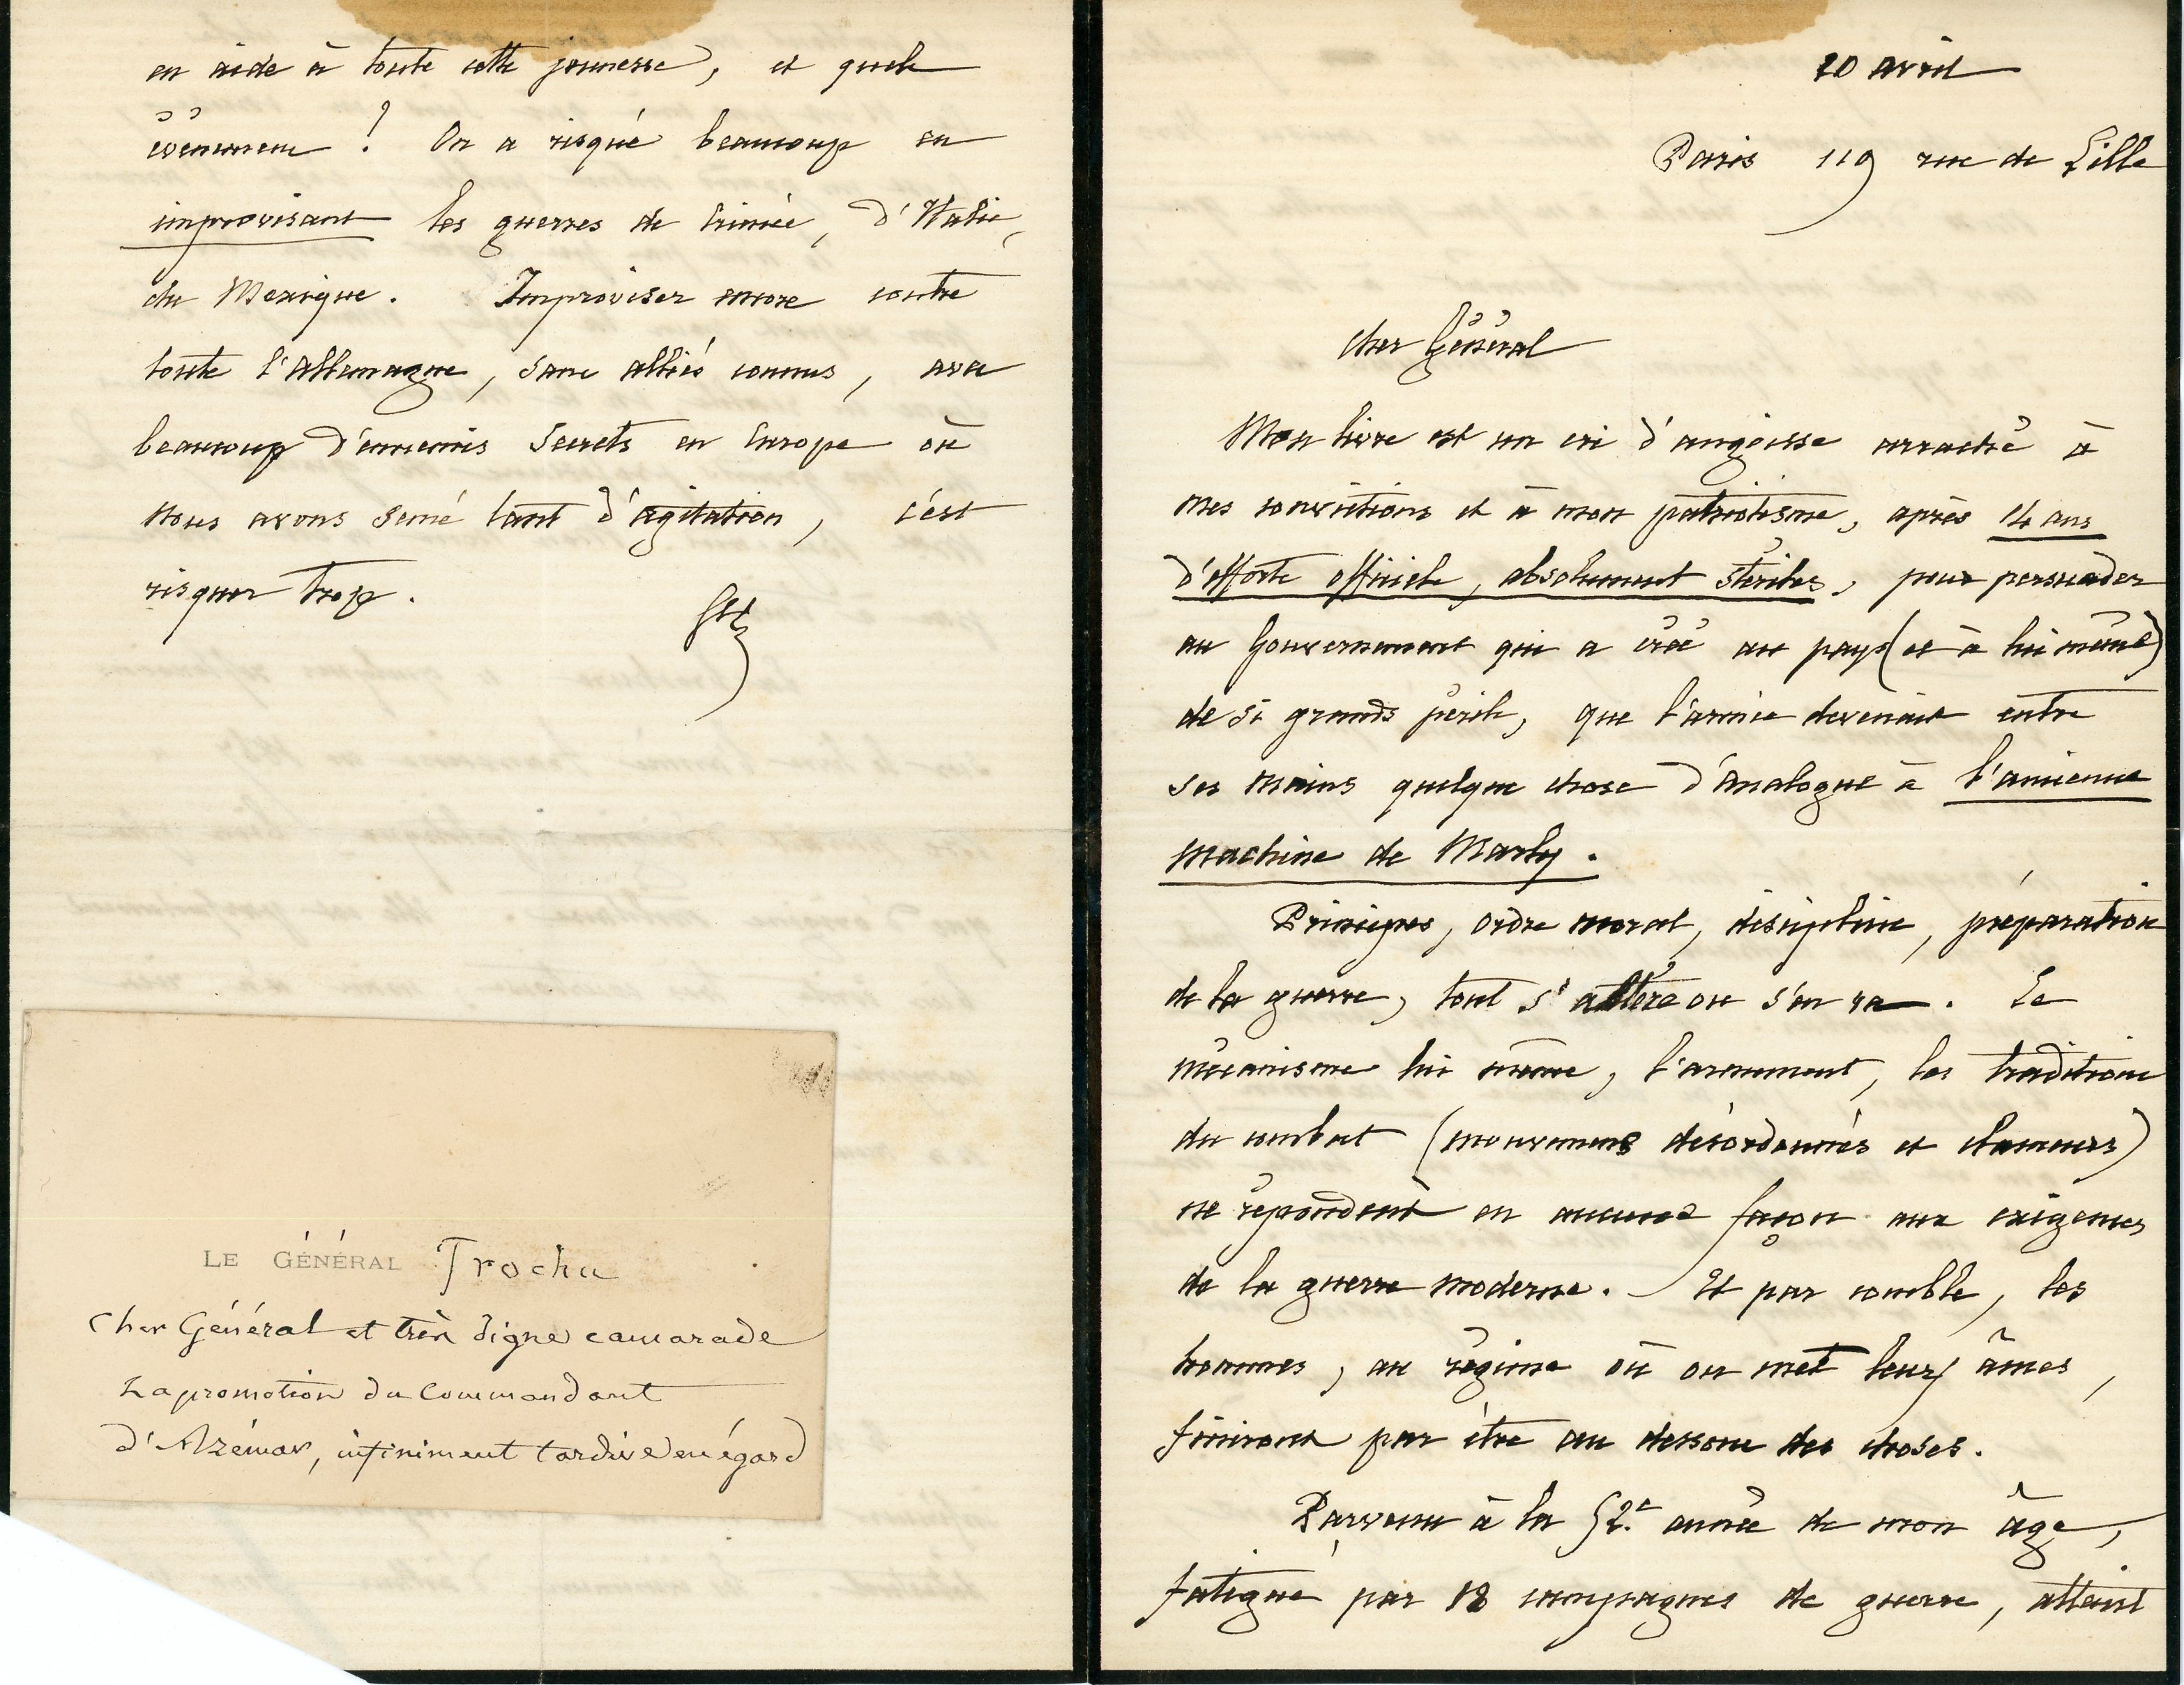 en aide à toute cette jeunesse, et quels
évènemens ! On a risqué beaucoup en
improvisant les guerres de Crimée, d'Italie,
du Mexique. Improviser encore contre
toute l'Allemagne, sans alliés connus, avec
beaucoup d'ennemis secrets en Europe où
nous avons semé tant d'agitation, c'est
risquer trop.
LE GÉNÉRAL Trochu
Cher Général et très digne camarade
La promotion du Commandant
d'Azémar, infiniment tardive eu égard
20 avril
Paris 119 rue de Lille
Cher Général
Mon livre est un cri d'angoisse arraché à
mes convictions et à mon patriotisme, après 14 ans
d'efforts officiels, absolument stériles, pour persuader
au Gouvernement qui a créé au pays (et à lui même)
de si grands périls, que l'armée devenait entre
ses mains quelque chose d'analogue à l'ancienne
machine de Marly.
Principes, ordre moral, discipline, préparation
de la guerre, tout s'altère ou s'en va. Le
mécanisme lui même, l'armement, les traditions
du combat (mouvemens désordonnés et clameurs)
ne répondent en aucune façon aux exigences
de la guerre moderne. Et par comble, les
hommes, au régime où on met leurs âmes,
finiront par être au dessous des choses.
Parvenu à la 52e. année de mon âge,
fatigué par 18 campagnes de guerre, atteint